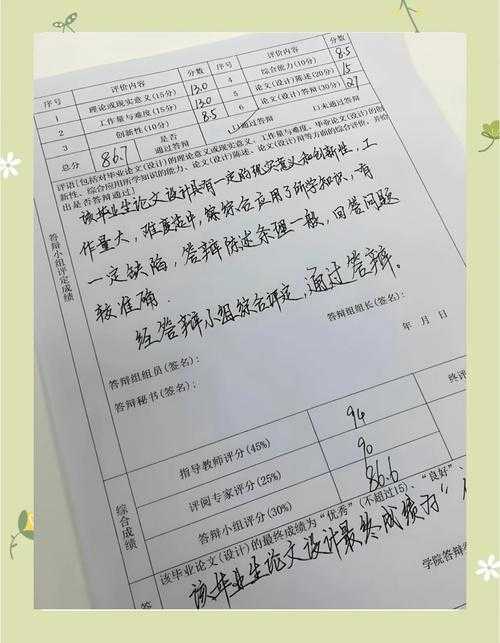 序号 评价内容 分数 评价内容 分数
1 理论或现实意义(15分) 13.0 4 综合能力(10分) 8.5
2 工作量与难度(15分) 13.0 5 论文(设计)陈述(20分) 15
3 创新性(10分) 8.5 6 论文(设计)答辩(30分) 27
总分 86.7 是否通过答辩 通过答辩 口未通过答辩
评语[包括对毕业论文(设计)的理论意义或现实意义、工作量与难度、毕业论文(设计)的创
新性、综合应用所学知识的能力、论文(设计)陈述、论文(设计)答辩等方面的综合评价,并给
出是否答辩通过]
该毕业生论文设计具有一定的现实意义和创新性,工
作量大,难度适中,综合应用了所学知识,有
一定缺陷,答辩陈述条理一般,回答问题
较准确.
经答辩小组综合评定,通过答辩。
答辩小组评定成绩
答辩组组长(签名):
年 月 日
答辩组组员(签名):
答辩秘书(签名):
综合成绩
指导教师评分(45%) 94 终评
评阅专家评分(25%) 90
答辩小组评分(30%) 86.6
该毕业论文(设计)的最终成绩为“优秀”(不超过15)、“良好”
该毕业生论文设计最终成绩为“
学院答辩委
答